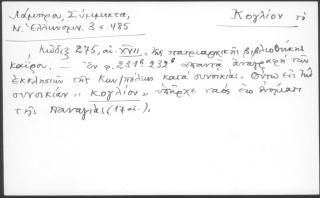 Λάμπρου, Σύμμικτα, Κογλίον τὸ
Ν. Ἑλληνομν. 3 σ. 485
Κώδιξ 275, αἰ. XVII, τῆς πατριαρχικῆς βιβλιοθήκης
Καΐρου. — Ἐν φ. 231β 232β ἀπαντᾷ ἀναγραφὴ τῶν
ἐκκλησιῶν τῆς Κων/πόλεως κατὰ συνοικίας. Οὕτω εἰς τὴν
συνοικίαν "Κογλίον" ὑπῆρχε ναὸς ἐπ' ὀνόματι
τῆς Παναγίας (17 αἰ.).